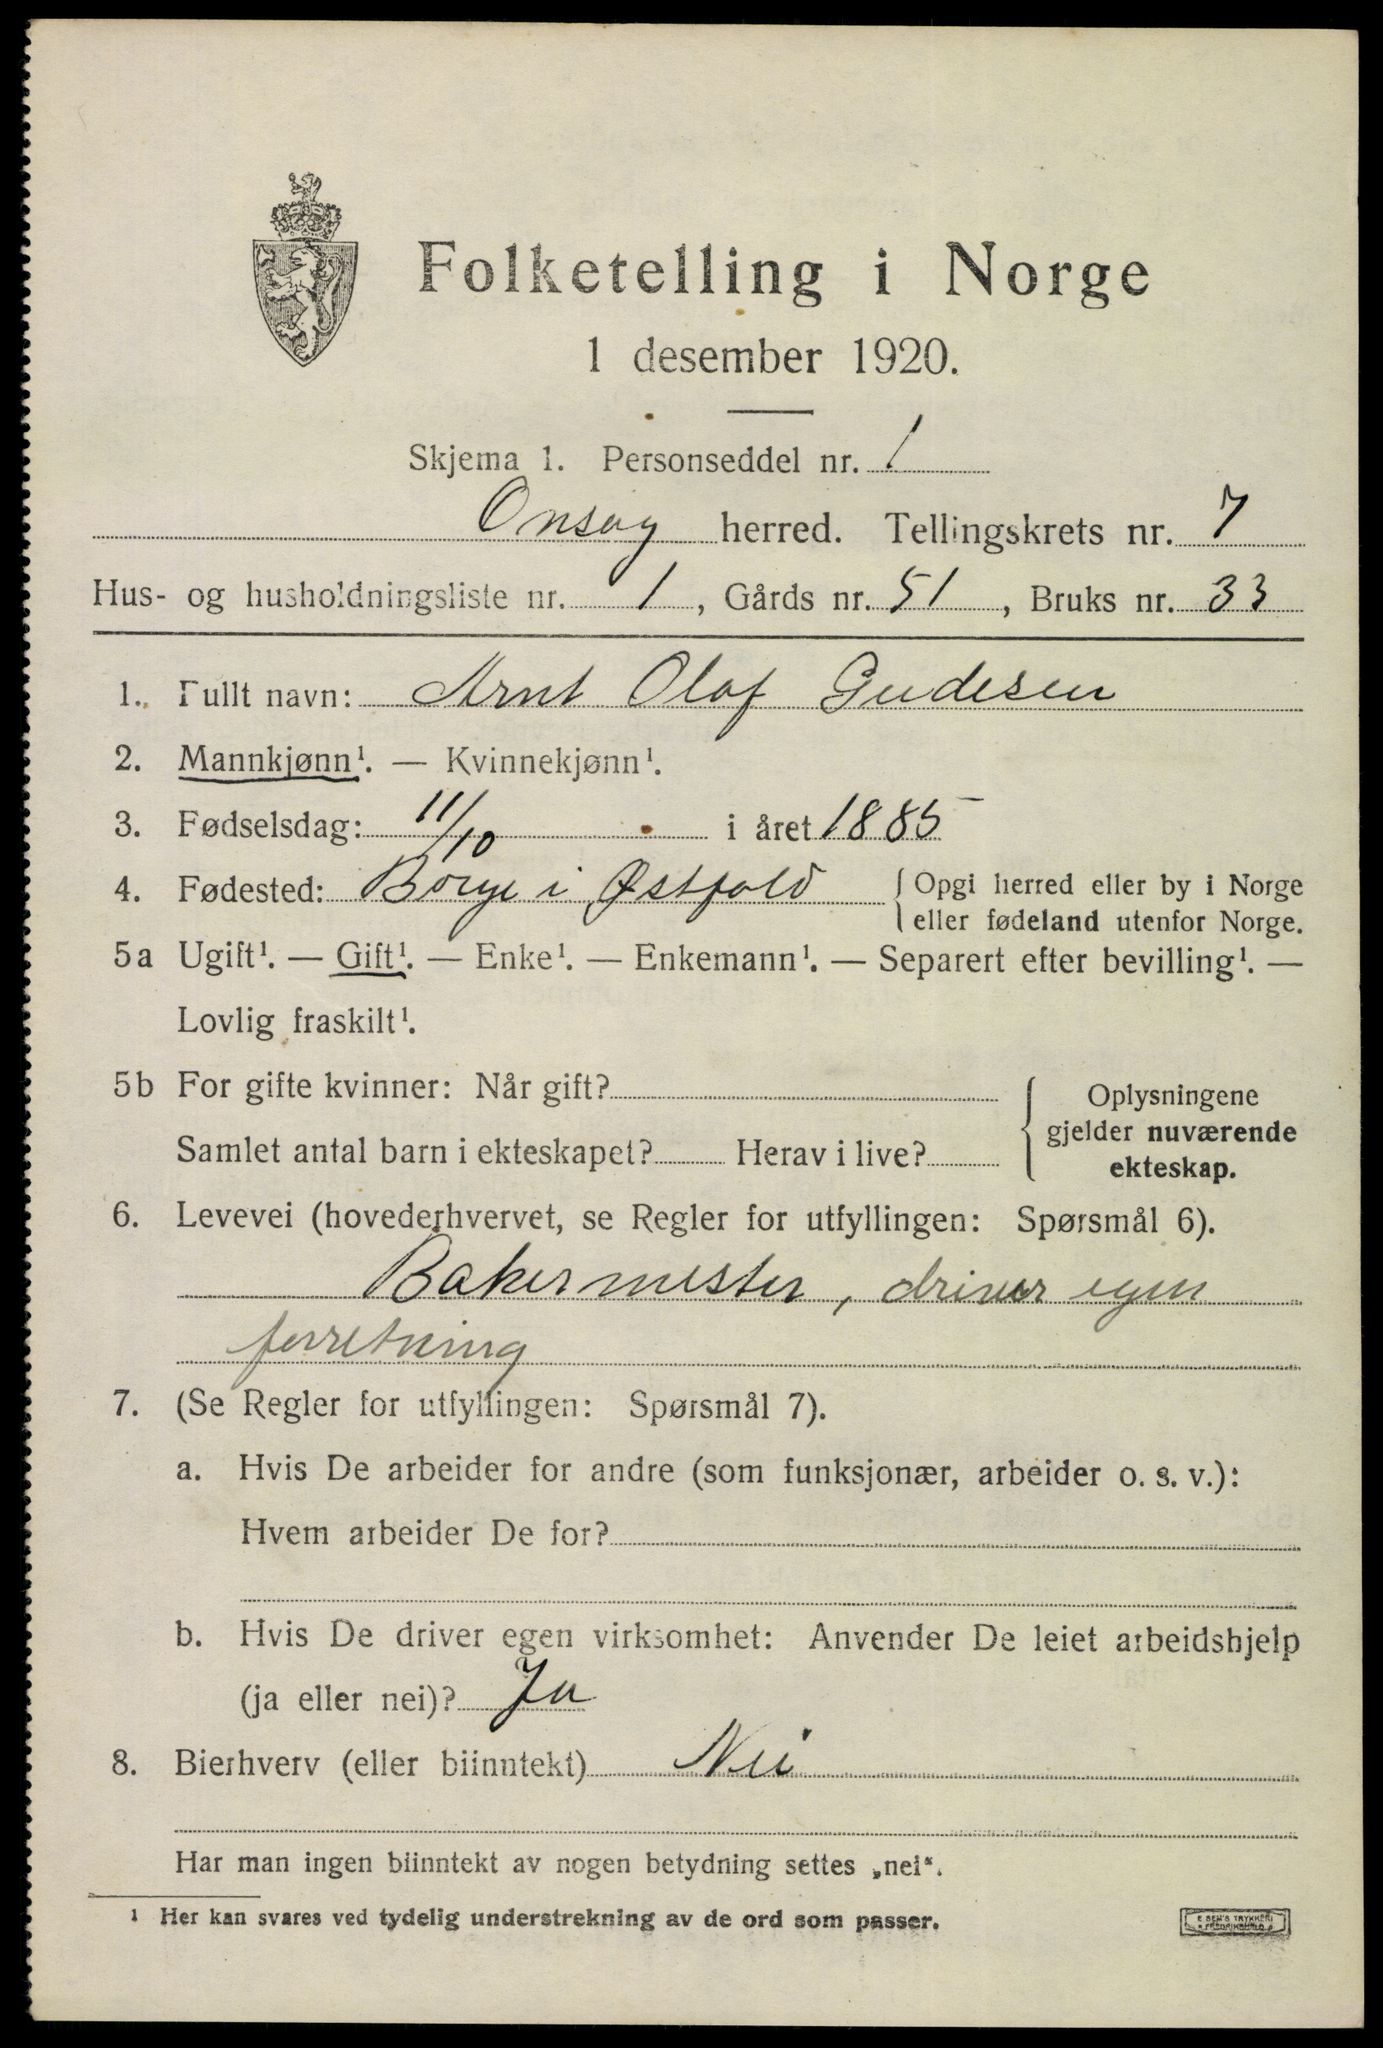 Folketelling i Norge
1 desember 1920.
Skjema 1. Personseddel nr. 1
Onsøy herred. Tellingskrets nr. 7
Hus- og husholdningsliste nr. 1, Gårds nr. 51, Bruks nr. 33
1. Fullt navn: Arnt Olaf Gudesen
2. Mannkjønn¹. — Kvinnekjønn¹.
3. Fødselsdag: 11/10 i året 1885
4. Fødested: Borge i Østfold { Opgi herred eller by i Norge
eller fødeland utenfor Norge.
5a Ugift¹. — Gift¹. — Enke¹. — Enkemann¹. — Separert efter bevilling¹. —
Lovlig fraskilt¹.
5b For gifte kvinner: Når gift?
Samlet antal barn i ekteskapet? Herav i live?
{ Oplysningene
gjelder nuværende
ekteskap.
6. Levevei (hovederhvervet, se Regler for utfyllingen: Spørsmål 6).
Bakermester, driver egen
forretning
7. (Se Regler for utfyllingen: Spørsmål 7).
a. Hvis De arbeider for andre (som funksjonær, arbeider o. s. v.):
Hvem arbeider De for?
b. Hvis De driver egen virksomhet: Anvender De leiet arbeidshjelp
(ja eller nei)? Ja
8. Bierhverv (eller biinntekt) Nei
Har man ingen biinntekt av nogen betydning settes „nei“.
¹ Her kan svares ved tydelig understrekning av de ord som passer.
E SEM'S TRYKKERI
FREDRIKSHALD